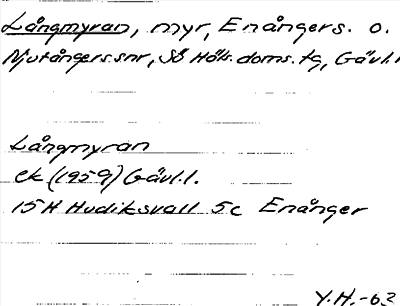 Långmyran, myr, Enångers. o.
Njutångers snr, Sö Häls. doms. tg, Gävl. l
Långmyran
ek (1959) Gävl. l.
15H Hudiksvall 5c Enånger
Y.H.-63